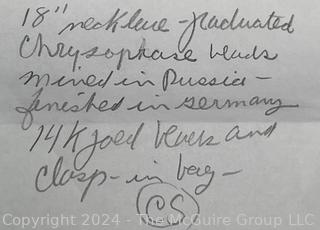 18" necklace - graduated
Chrysophase beads
mined in Russia -
finished in germany
14K goed beads and
clasp - in bag -
CS
Copyright 2024 - The McGuire Group LLC